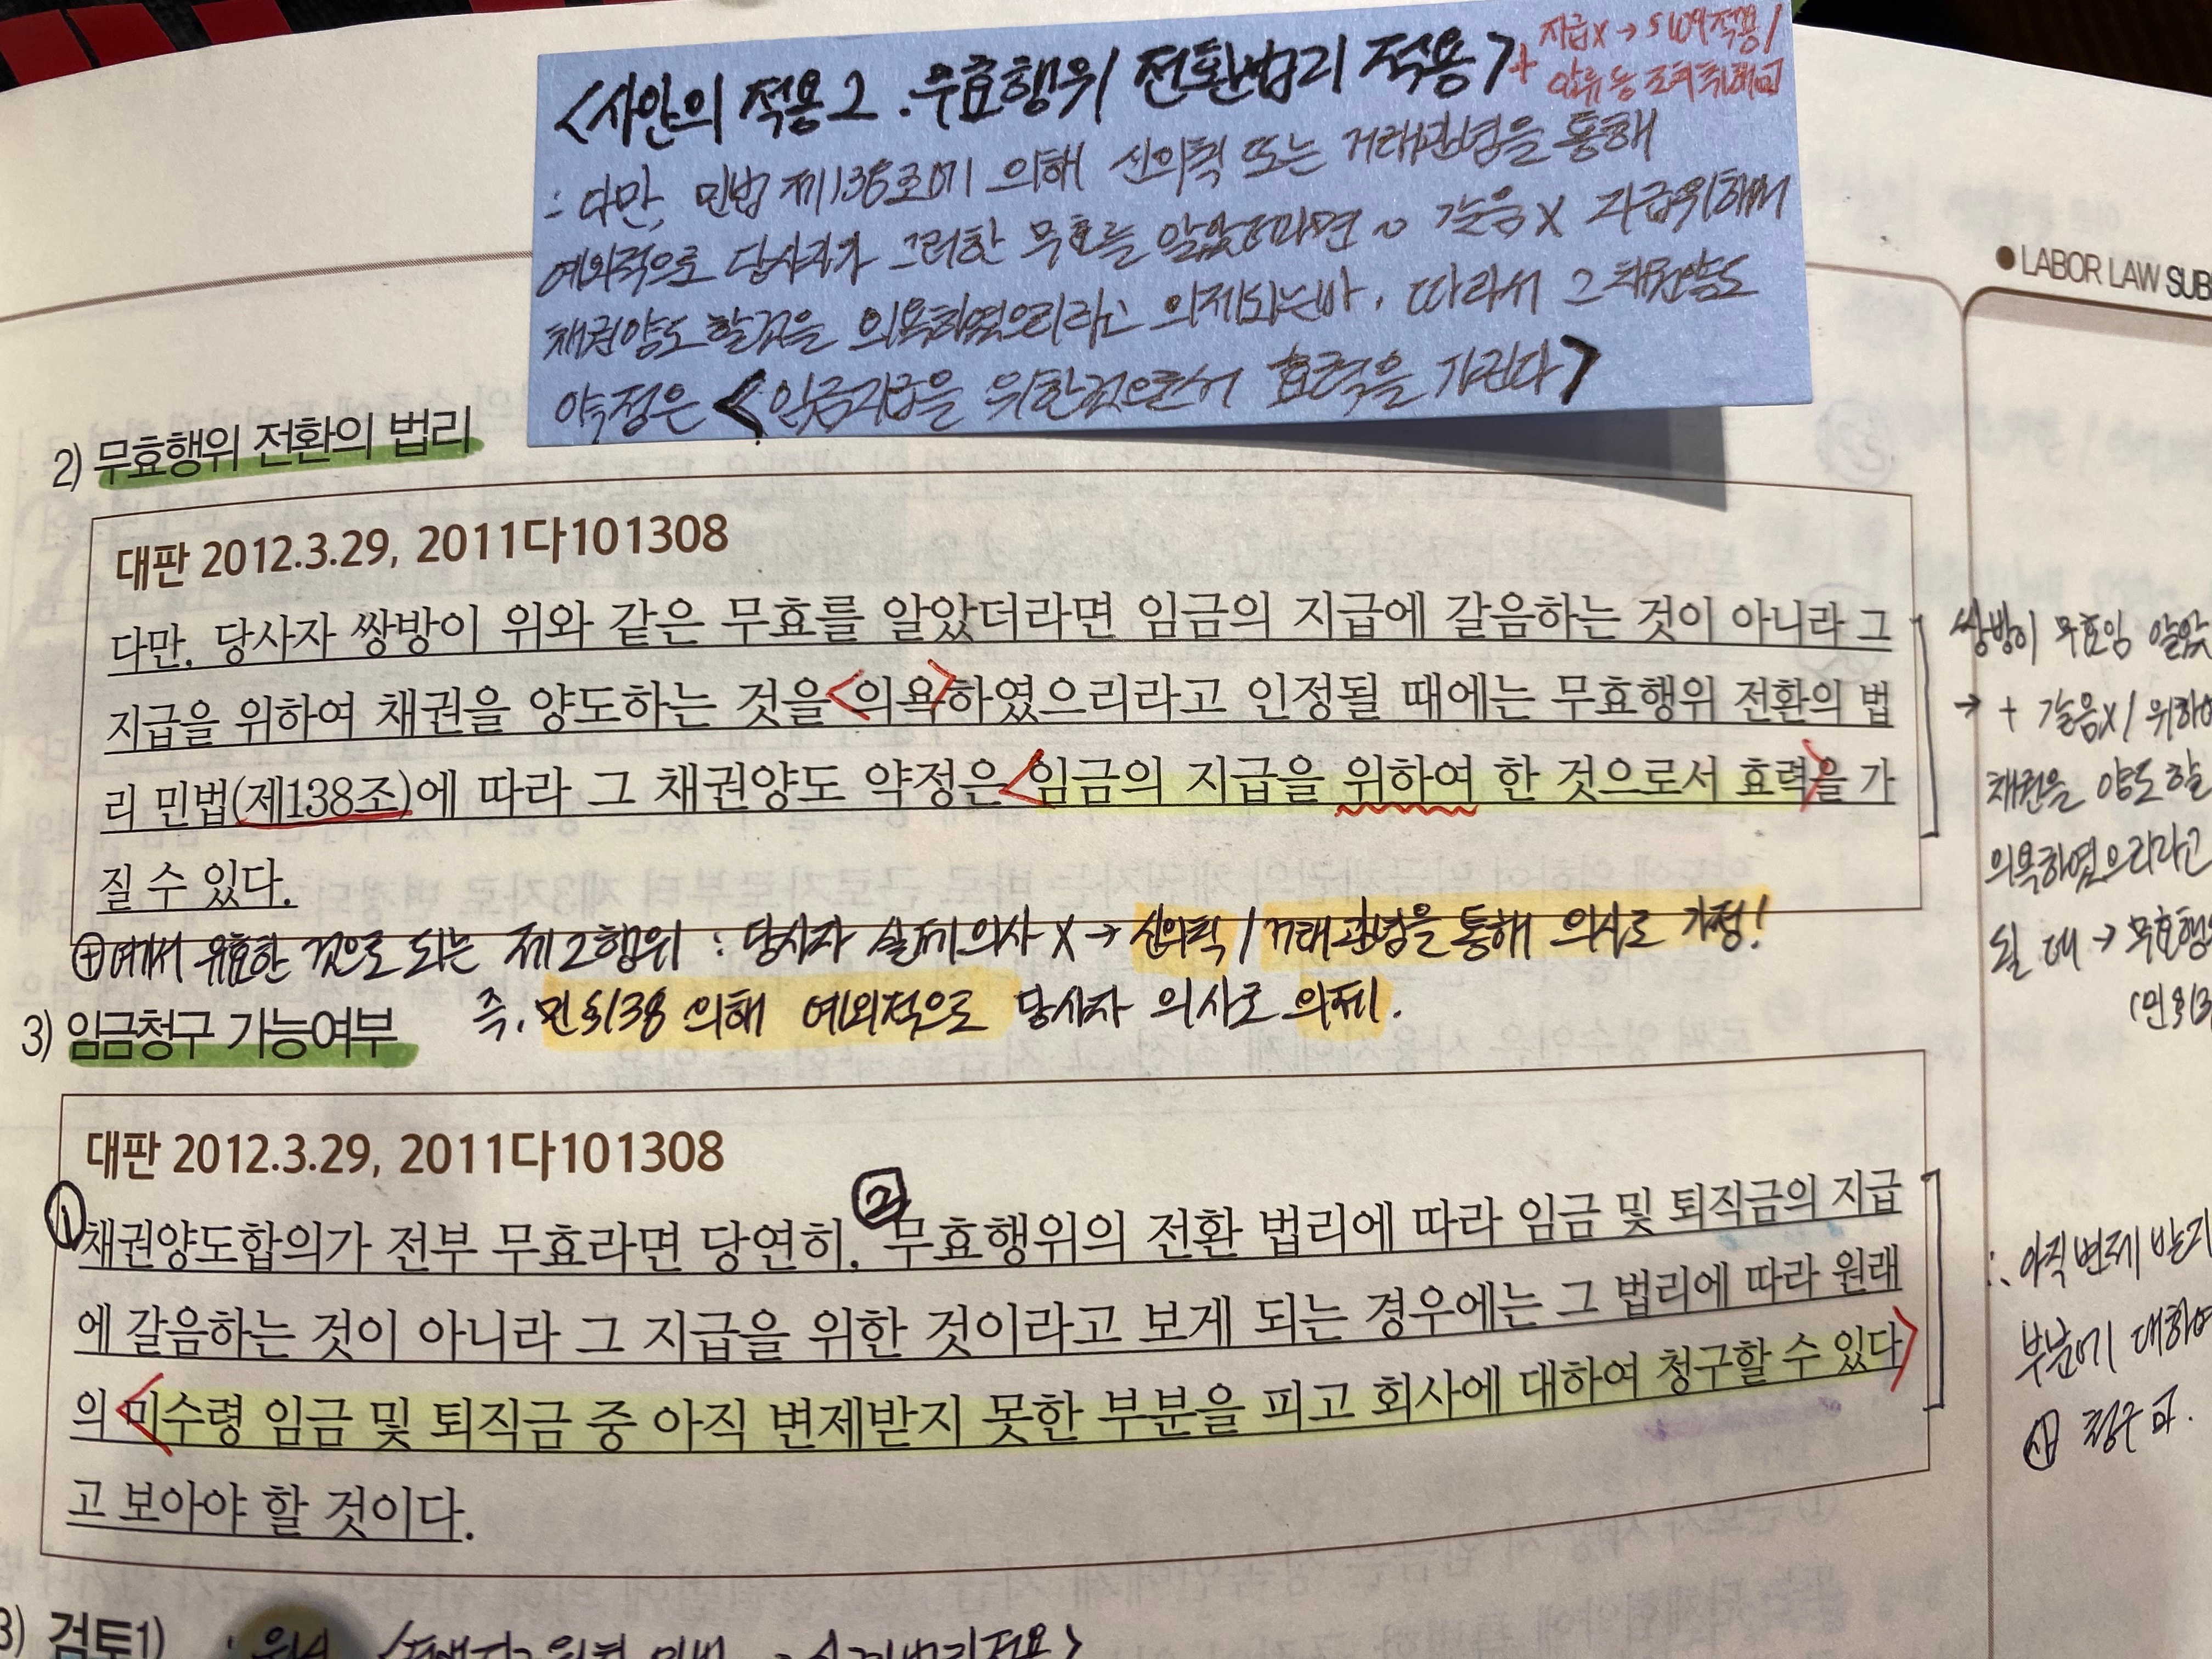 <사안의 적용2. 무효행위 전환법리 적용> + 지급X → §109적용/
∴ 다만, 민법 제138조에 의해 신의칙 또는 거래관념을 통해
예외적으로 당사자가 그러한 무효를 알았더라면 ~ 갈음X 지급위해서
채권양도 할것을 의욕하였으리라고 의제되는바, 따라서 그 채권양도
약정은 <임금지급을 위한것으로서 효력을 가진다>
● LABOR LAW SUB
2) 무효행위 전환의 법리
대판 2012.3.29, 2011다101308
다만, 당사자 쌍방이 위와 같은 무효를 알았더라면 임금의 지급에 갈음하는 것이 아니라 그
지급을 위하여 채권을 양도하는 것을 <의욕>하였으리라고 인정될 때에는 무효행위 전환의 법
리 민법(제138조)에 따라 그 채권양도 약정은 <임금의 지급을 위하여 한 것으로서 효력>을 가
질 수 있다.
쌍방이 무효임 알았
→ + 갈음X / 위하여
채권을 양도할
의욕하였으리라고
될 때 → 무효행위
(민§13
⊕ 여기서 유효한 것으로 되는 제2행위 : 당사자 실제의사 X → 신의칙 / 거래관념을 통해 의사로 가정!
즉, 민§138 의해 예외적으로 당사자 의사로 의제.
3) 임금청구 가능여부
대판 2012.3.29, 2011다101308
① 채권양도합의가 전부 무효라면 당연히, ② 무효행위의 전환 법리에 따라 임금 및 퇴직금의 지급
에 갈음하는 것이 아니라 그 지급을 위한 것이라고 보게 되는 경우에는 그 법리에 따라 원래
의 <미수령 임금 및 퇴직금 중 아직 변제받지 못한 부분을 피고 회사에 대하여 청구할 수 있다>
고 보아야 할 것이다.
∴ 아직 변제 받지
부분에 대하여
청구 可.
3) 검토1)